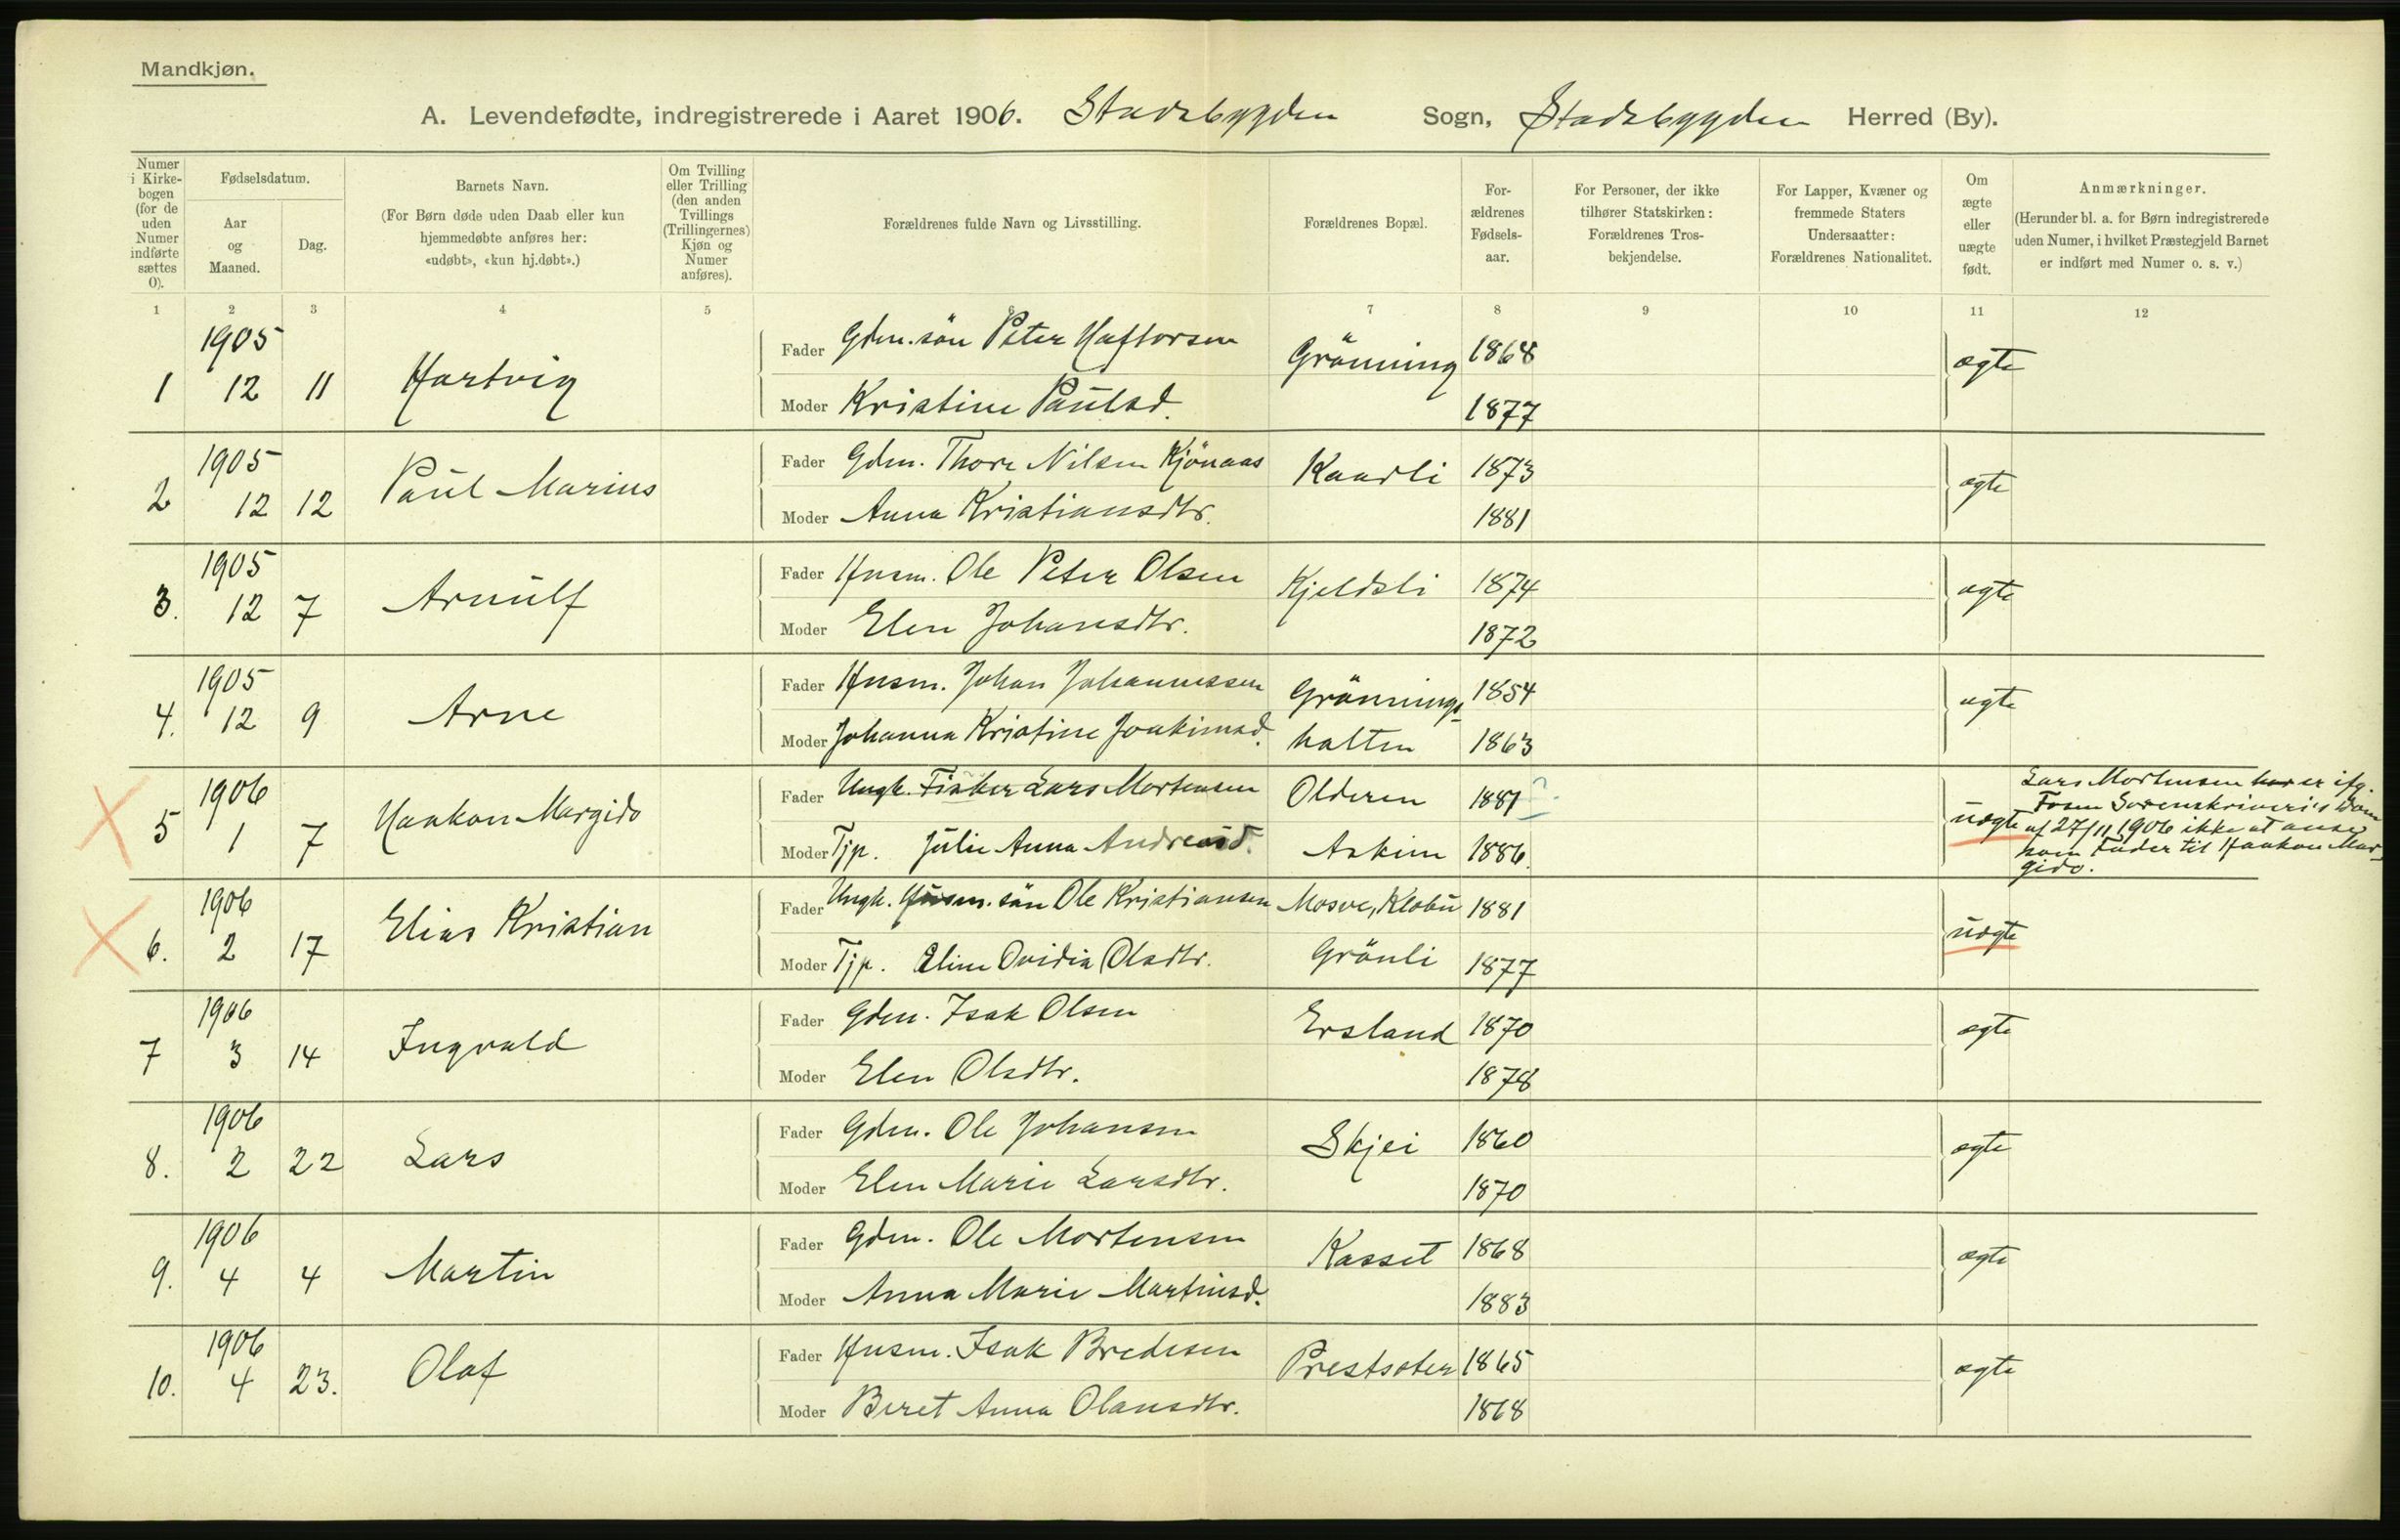 Mandkjøn.
A. Levendefødte, indregistrerede i Aaret 1906. Stadsbygden Sogn, Stadsbygden Herred (By).
Numer i Kirke-bogen (for de uden Numer indførte sættes 0).
Fødselsdatum.
Aar og Maaned.
Dag.
Barnets Navn.
(For Børn døde uden Daab eller kun hjemmedøbte anføres her: «udøbt», «kun hj.døbt».)
Om Tvilling eller Trilling (den anden Tvillings (Trillingernes) Kjøn og Numer anføres).
Forældrenes fulde Navn og Livsstilling.
Forældrenes Bopæl.
For-ældrenes Fødsels-aar.
For Personer, der ikke tilhører Statskirken: Forældrenes Tros-bekjendelse.
For Lapper, Kvæner og fremmede Staters Undersaatter: Forældrenes Nationalitet.
Om ægte eller uægte født.
Anmærkninger.
(Herunder bl. a. for Børn indregistrerede uden Numer, i hvilket Præstegjeld Barnet er indført med Numer o. s. v.)
1 2 3 4 5 6 7 8 9 10 11 12
1 1905 12 11 Hartvig
Fader Gdm.sön Peter Haftorsen Grönning 1868 ægte
Moder Kristine Paulsd. 1877
2 1905 12 12 Paul Marius
Fader Gdm. Thore Nilsen Kjönaas Kaarli 1873 ægte
Moder Anna Kristiansdtr. 1881
3. 1905 12 7 Arnulf
Fader Husm. Ole Peter Olsen Kjeldsli 1874 ægte
Moder Elen Johansdtr. 1872
4. 1905 12 9 Arne
Fader Husm. Johan Johannessen Grönnings- 1854 ægte
Moder Johanna Kristine Joakimsd. halten 1863
5 1906 1 7 Haakon Margido
Fader Ungk. Fisker Lars Mortensen Olderen 1881 ?
Moder Tjp. Julie Anna Andreasd. Askim 1886.
uægte
Lars Mortensen er ifg.
Fosen Sorenskriveri's Dom
af 27/11 1906 ikke at anse
som Fader til Haakon Mar-
gido.
6. 1906 2 17 Elias Kristian
Fader Ungk. Husm. sön Ole Kristiansen Mosve, Klæbu 1881 uægte
Moder Tjp. Eline Ovidia Olsdtr. Grönli 1877
7 1906 3 14 Ingvald
Fader Gdm. Isak Olsen Ersland 1870 ægte
Moder Elen Olsdtr. 1878
8. 1906 2 22 Lars
Fader Gdm. Ole Johansen Skjei 1860 ægte
Moder Elen Marie Larsdtr. 1870
9. 1906 4 4 Martin
Fader Gdm. Ole Mortensen Kasset 1868 ægte
Moder Anna Marie Martinsd. 1883
10. 1906 4 23. Olaf
Fader Husm. Isak Bredesen Prestsæter 1865 ægte
Moder Beret Anna Olausdtr. 1868